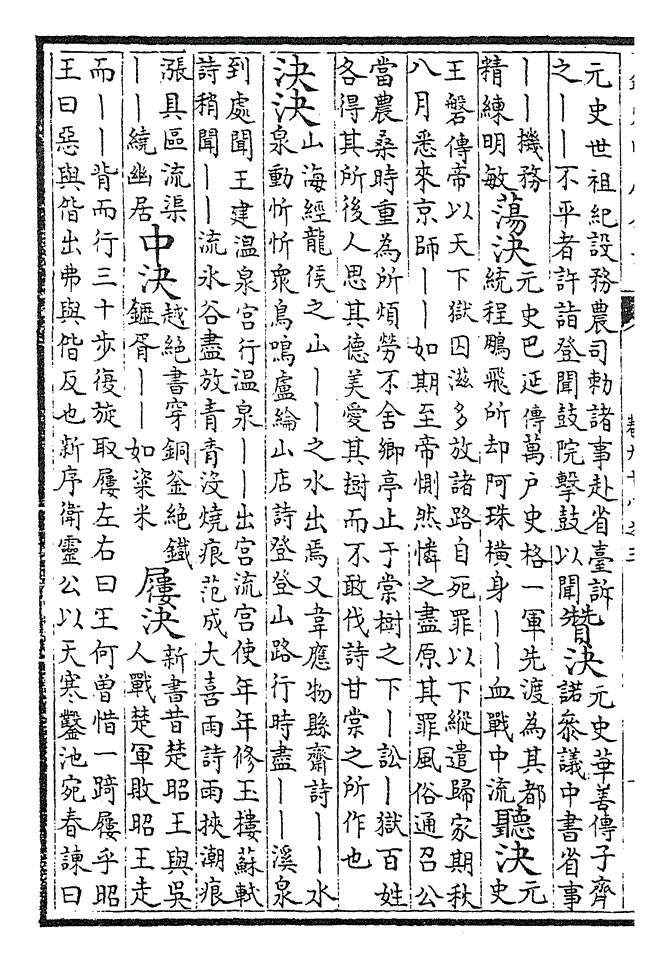 元史世祖紀設務農司勅諸事赴省臺訴
之——不平者許詣登聞鼓院擊鼓以聞
贊決
元史華善傳子齊
諾叅議中書省事
——機務
精練明敏
蕩決
元史巴延傳萬户史格一軍先渡為其都
統程鵬飛所却阿珠橫身——血戰中流
聽決
元
史
王磐傳帝以天下獄囚滋多放諸路自死罪以下縱遣歸家期秋
八月悉來京師——如期至帝惻然憐之盡原其罪風俗通召公
當農桑時重為所煩勞不舍鄉亭止于棠樹之下—訟—獄百姓
各得其所後人思其德美愛其樹而不敢伐詩甘棠之所作也
決決
山海經龍侯之山——之水出焉又韋應物縣齋詩——水
泉動忻忻衆鳥鳴盧綸山店詩登登山路行時盡——溪泉
到處聞王建温泉宫行温泉——出宫流宫使年年修玉樓蘇軾
詩稍聞——流氷谷盡放青青沒燒痕范成大喜雨詩雨挾潮痕
漲具區流渠
——繞幽居
中決
越絕書穿銅釜絕鐵
鑢胥——如粢米
屨決
新書昔楚昭王與吳
人戰楚軍敗昭王走
而——背而行三十步復旋取屨左右曰王何曽惜一踦屨乎昭
王曰惡與偕出弗與偕反也新序衛靈公以天寒鑿池宛春諫曰